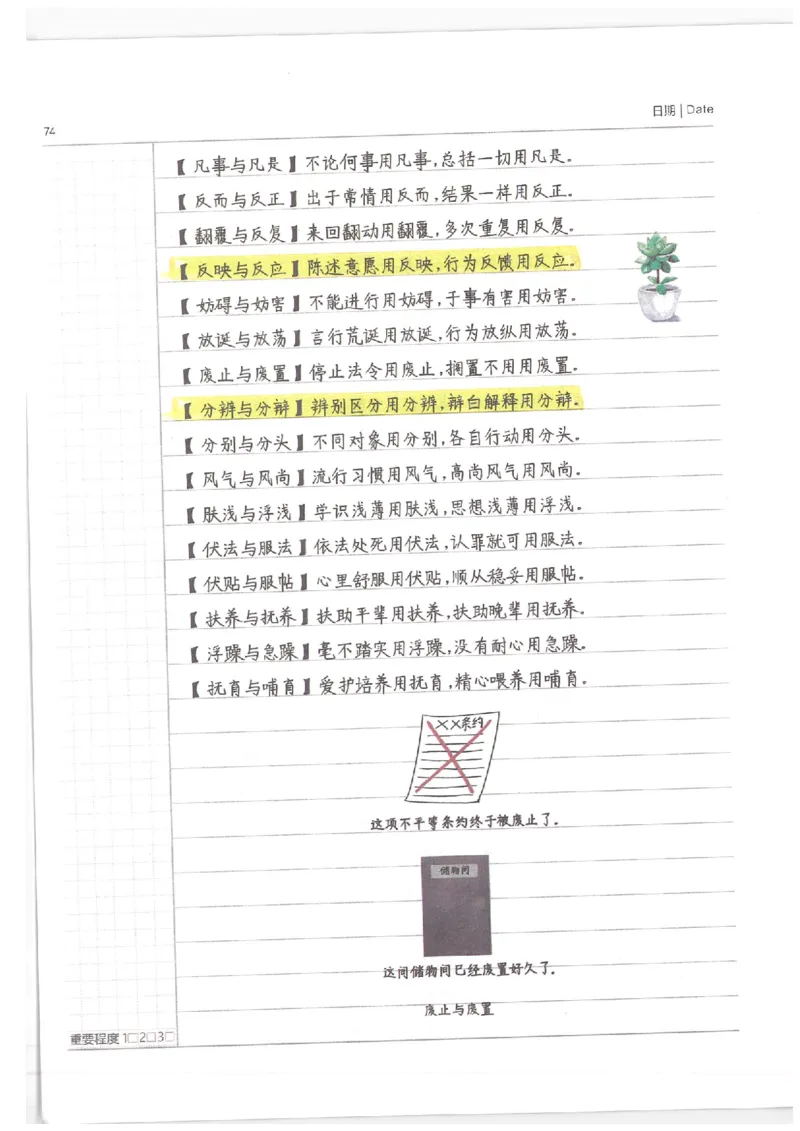 日期 | Date
74
【凡事与凡是】不论何事用凡事,总括一切用凡是。
【反而与反正】出于常情用反而,结果一样用反正。
【翻覆与反复】来回翻动用翻覆,多次重复用反复。
【反映与反应】陈述意愿用反映,行为反馈用反应。
【妨碍与妨害】不能进行用妨碍,于事有害用妨害。
【放诞与放荡】言行荒诞用放诞,行为放纵用放荡。
【废止与废置】停止法令用废止,搁置不用用废置。
【分辨与分辩】辨别区分用分辨,辩白解释用分辩。
【分别与分头】不同对象用分别,各自行动用分头。
【风气与风尚】流行习惯用风气,高尚风气用风尚。
【肤浅与浮浅】学识浅薄用肤浅,思想浅薄用浮浅。
【伏法与服法】依法处死用伏法,认罪就可用服法。
【伏贴与服帖】心里舒服用伏贴,顺从稳妥用服帖。
【扶养与抚养】扶助平辈用扶养,扶助晚辈用抚养。
【浮躁与急躁】毫不踏实用浮躁,没有耐心用急躁。
【抚育与哺育】爱护培养用抚育,精心喂养用哺育。
××条约
这项不平等条约终于被废止了。
储物间
这间储物间已经废置好久了。
废止与废置
重要程度 1□2□3□